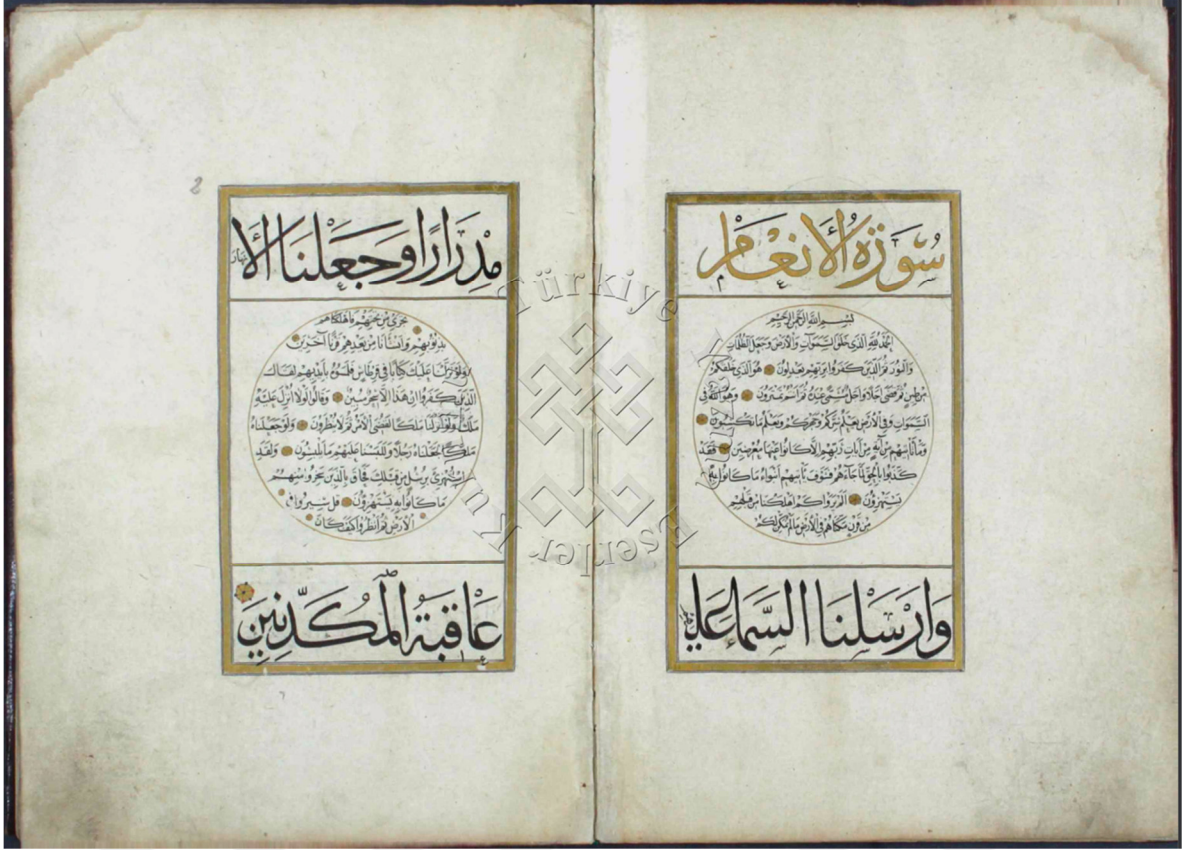 سُورَةُ الْأَنْعَامِ
بسم الله الرحمن الرحيم
الحمد لله الذي خلق السموات والأرض وجعل الظلمات
والنور ثم الذين كفروا بربهم يعدلون هو الذي خلقكم
من طين ثم قضى أجلا وأجل مسمى عنده ثم أنتم تمترون وهو الله في
السموات وفي الأرض يعلم سركم وجهركم ويعلم ما تكسبون
وما تأتيهم من آية من آيات ربهم إلا كانوا عنها معرضين فقد
كذبوا بالحق لما جاءهم فسوف يأتيهم أنباء ما كانوا به
يستهزؤن ألم يروا كم أهلكنا من قبلهم
من قرن مكناهم في الأرض ما لم نمكن لكم
وَأَرْسَلْنَا السَّمَاءَ عَلَيْهِمْ
مِدْرَارًا وَجَعَلْنَا الْأَنْهَارَ
تجري من تحتهم فأهلكناهم
بذنوبهم وأنشأنا من بعدهم قرنا آخرين
ولو نزلنا عليك كتابا في قرطاس فلمسوه بأيديهم لقال
الذين كفروا إن هذا إلا سحر مبين وقالوا لولا أنزل عليه
ملك ولو أنزلنا ملكا لقضي الأمر ثم لا ينظرون ولو جعلناه
ملكا لجعلناه رجلا وللبسنا عليهم ما يلبسون ولقد
استهزئ برسل من قبلك فحاق بالذين سخروا منهم
ما كانوا به يستهزؤن قل سيروا في
الأرض ثم انظروا كيف كان
عَاقِبَةُ الْمُكَذِّبِينَ
Türkiye
Eserler Ku